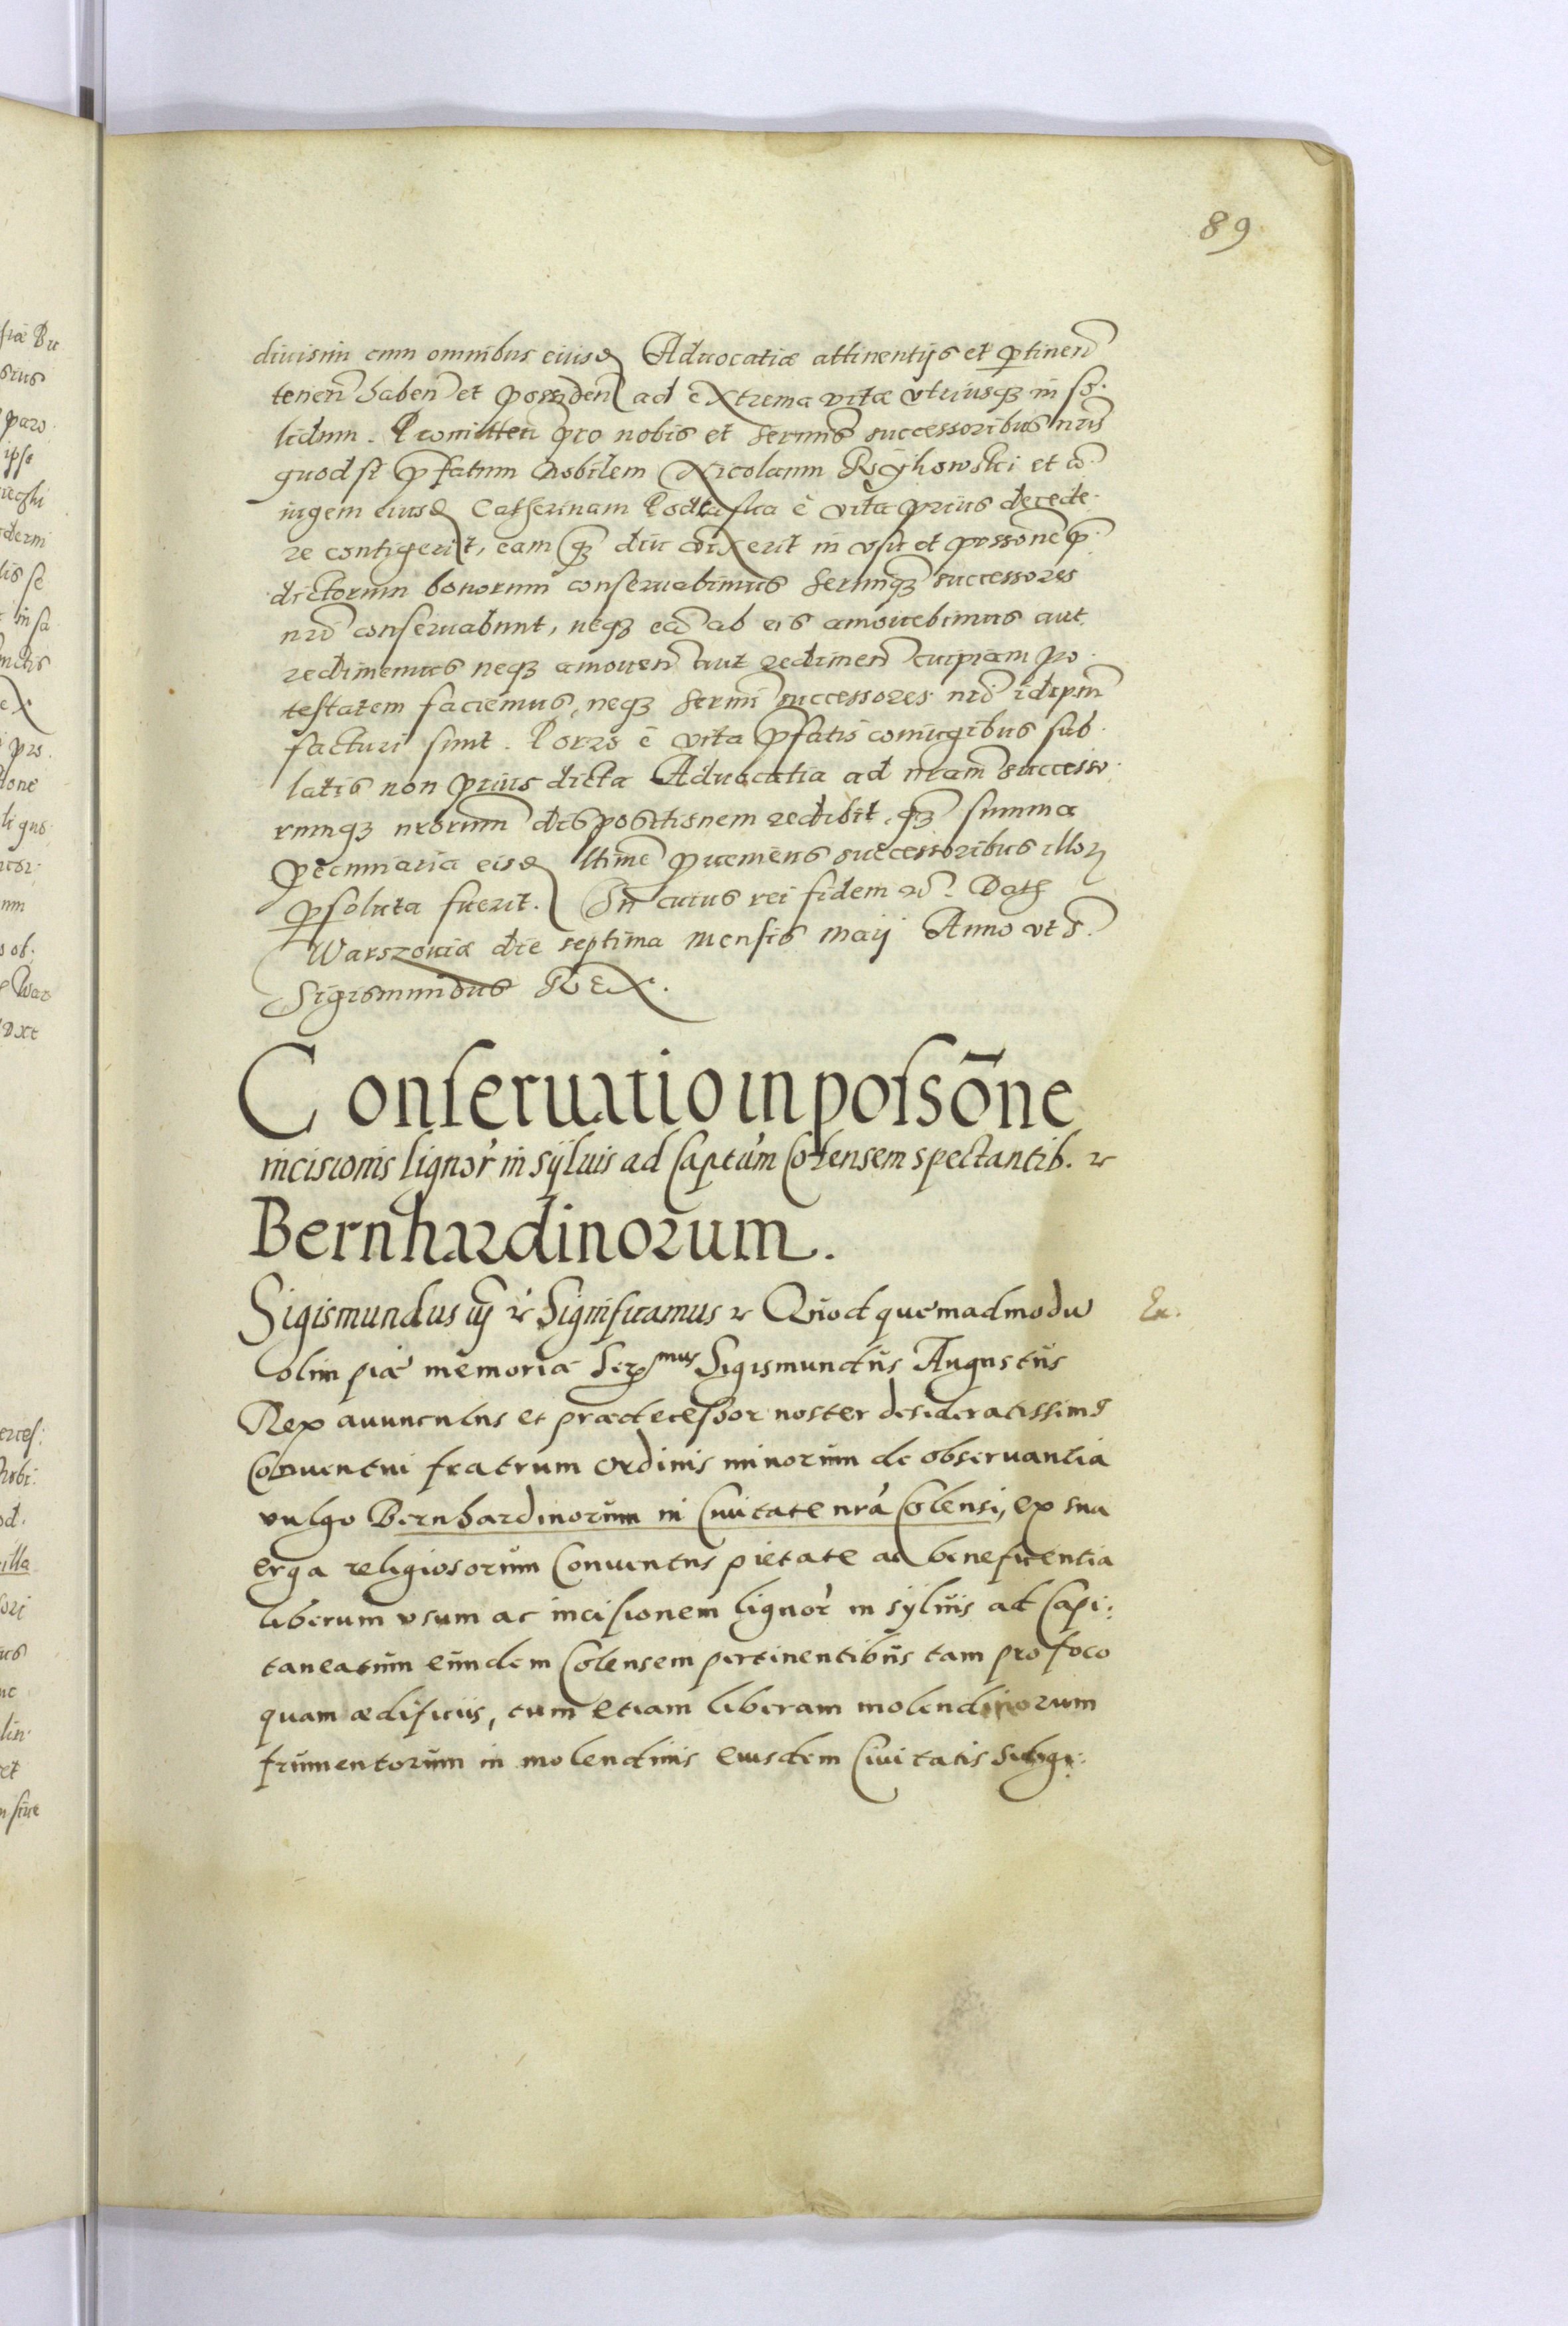 89
diuisim cum omnibus eiusd Aduocatiæ attinentijs et ptinen
tenen haben et possiden ad extrema vitæ vtriusq in so.
lidum. Promitten pro nobis et sermis successoribus nris
quod si pfatum Nobilem Nicolaum et co
iugem eiusd Catherinam è vita prius decede.
re contigerit, eam q diu vixerit in vsu et possone p.
dictorum bonorum conseruabimus Sermiq successores
nri conseruabunt, neq eã ab eis amouebimus aut
redimemus neq amouen aut redimen cuipiam po.
testatem faciemus, neq sermi successores nri idipm
facturi sunt. Porro è vita pfatis coniugibus sub
latis non prius dicta Aduocatia ad nram successo.
rumq nrorum dispositionem redibit, q summa
pecuniaria eisd ltime puemens successoribus illor
psoluta fuerit. In cuius rei fidem etc. Dat
Warszouiæ die septima mensis Maij Anno vt s.
Sigismundus REX.
Conseruatio in possõne
incisionis lignor in syluis ad Captum Colensem spectantib. etc
Bernhardinorum.
Sigismundus iij etc Significamus etc Quod quemadmodu Ex.
olim piæ memoriæ Ser mus Sigismundus Augustus
Rex auunculus et prædecessor noster desideratissim9
Conuentui fratrum ordinis minorum de obseruantia
vulgo Bernhardinorum in Ciuitate nra Colensi, ex sua
erga religiosorum Conuentus pietate ac beneficentia
liberum vsum ac incisionem lignor in syluis ad Capi:
taneatum eundem Colensem pertinentibus tam pro foco
quam ædificiis, tum etiam liberam molendinorum
frumentorum in molendinis eiusdem Ciuitatis